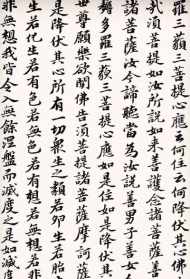 羅三藐三菩提心應云何住云何降伏其
哉須菩提如汝所說如來善護念諸菩薩善
諸菩薩汝今諦聽當為汝說善男子善女人
耨多羅三藐三菩提心應如是住如是降伏其
世尊願樂欲聞佛告須菩提諸菩薩摩訶薩
是降伏其心所有一切眾生之類若卵生若胎
生若化生若有色若無色若有想若無想若非
非無想我皆令入無餘涅槃而滅度之如是滅度